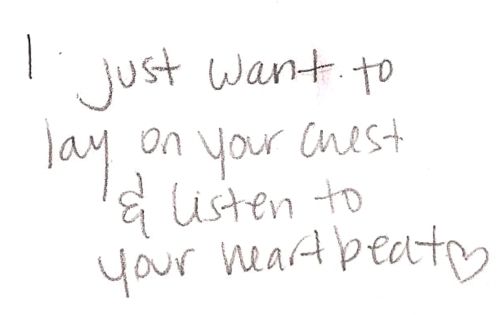 I just want to
lay on your chest
& listen to
your heartbeat♡